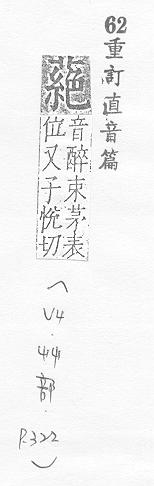 62重訂直音篇
蕝
音醉束茅表
位又子悅切
(V4.艸部.P.322)